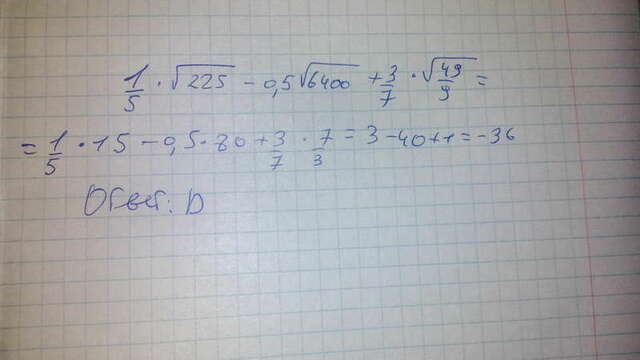 1/5 · √225 - 0,5√6400 + 3/7 · √(49/9) =
= 1/5 · 15 - 0,5 · 80 + 3/7 · 7/3 = 3 - 40 + 1 = -36
Ответ: D